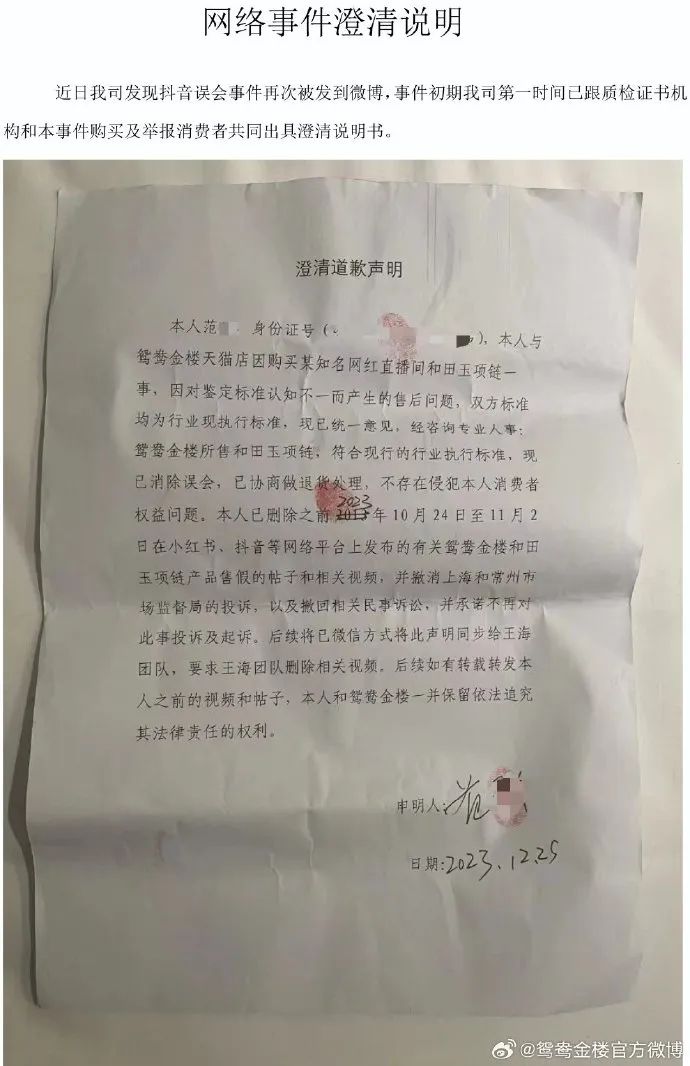 网络事件澄清说明
近日我司发现抖音误会事件再次被发到微博，事件初期我司第一时间已跟质检证书机
构和本事件购买及举报消费者共同出具澄清说明书。
澄清道歉声明
本人范 身份证号（ ），本人与
鸳鸯金楼天猫店因购买某知名网红直播间和田玉项链一
事，因对鉴定标准认知不一而产生的售后问题，双方标准
均为行业现执行标准，现已统一意见，经咨询专业人事：
鸳鸯金楼所售和田玉项链，符合现行的行业执行标准，现
已消除误会，已协商做退货处理，不存在侵犯本人消费者
2023
权益问题。本人已删除之前 年 10 月 24 日至 11 月 2
日在小红书、抖音等网络平台上发布的有关鸳鸯金楼和田
玉项链产品售假的帖子和相关视频，并撤消上海和常州市
场监督局的投诉，以及撤回相关民事诉讼，并承诺不再对
此事投诉及起诉。后续将已微信方式将此声明同步给王海
团队，要求王海团队删除相关视频。后续如有转载转发本
人之前的视频和帖子，本人和鸳鸯金楼一并保留依法追究
其法律责任的权利。
申明人：范
日期：2023.12.25
@鸳鸯金楼官方微博